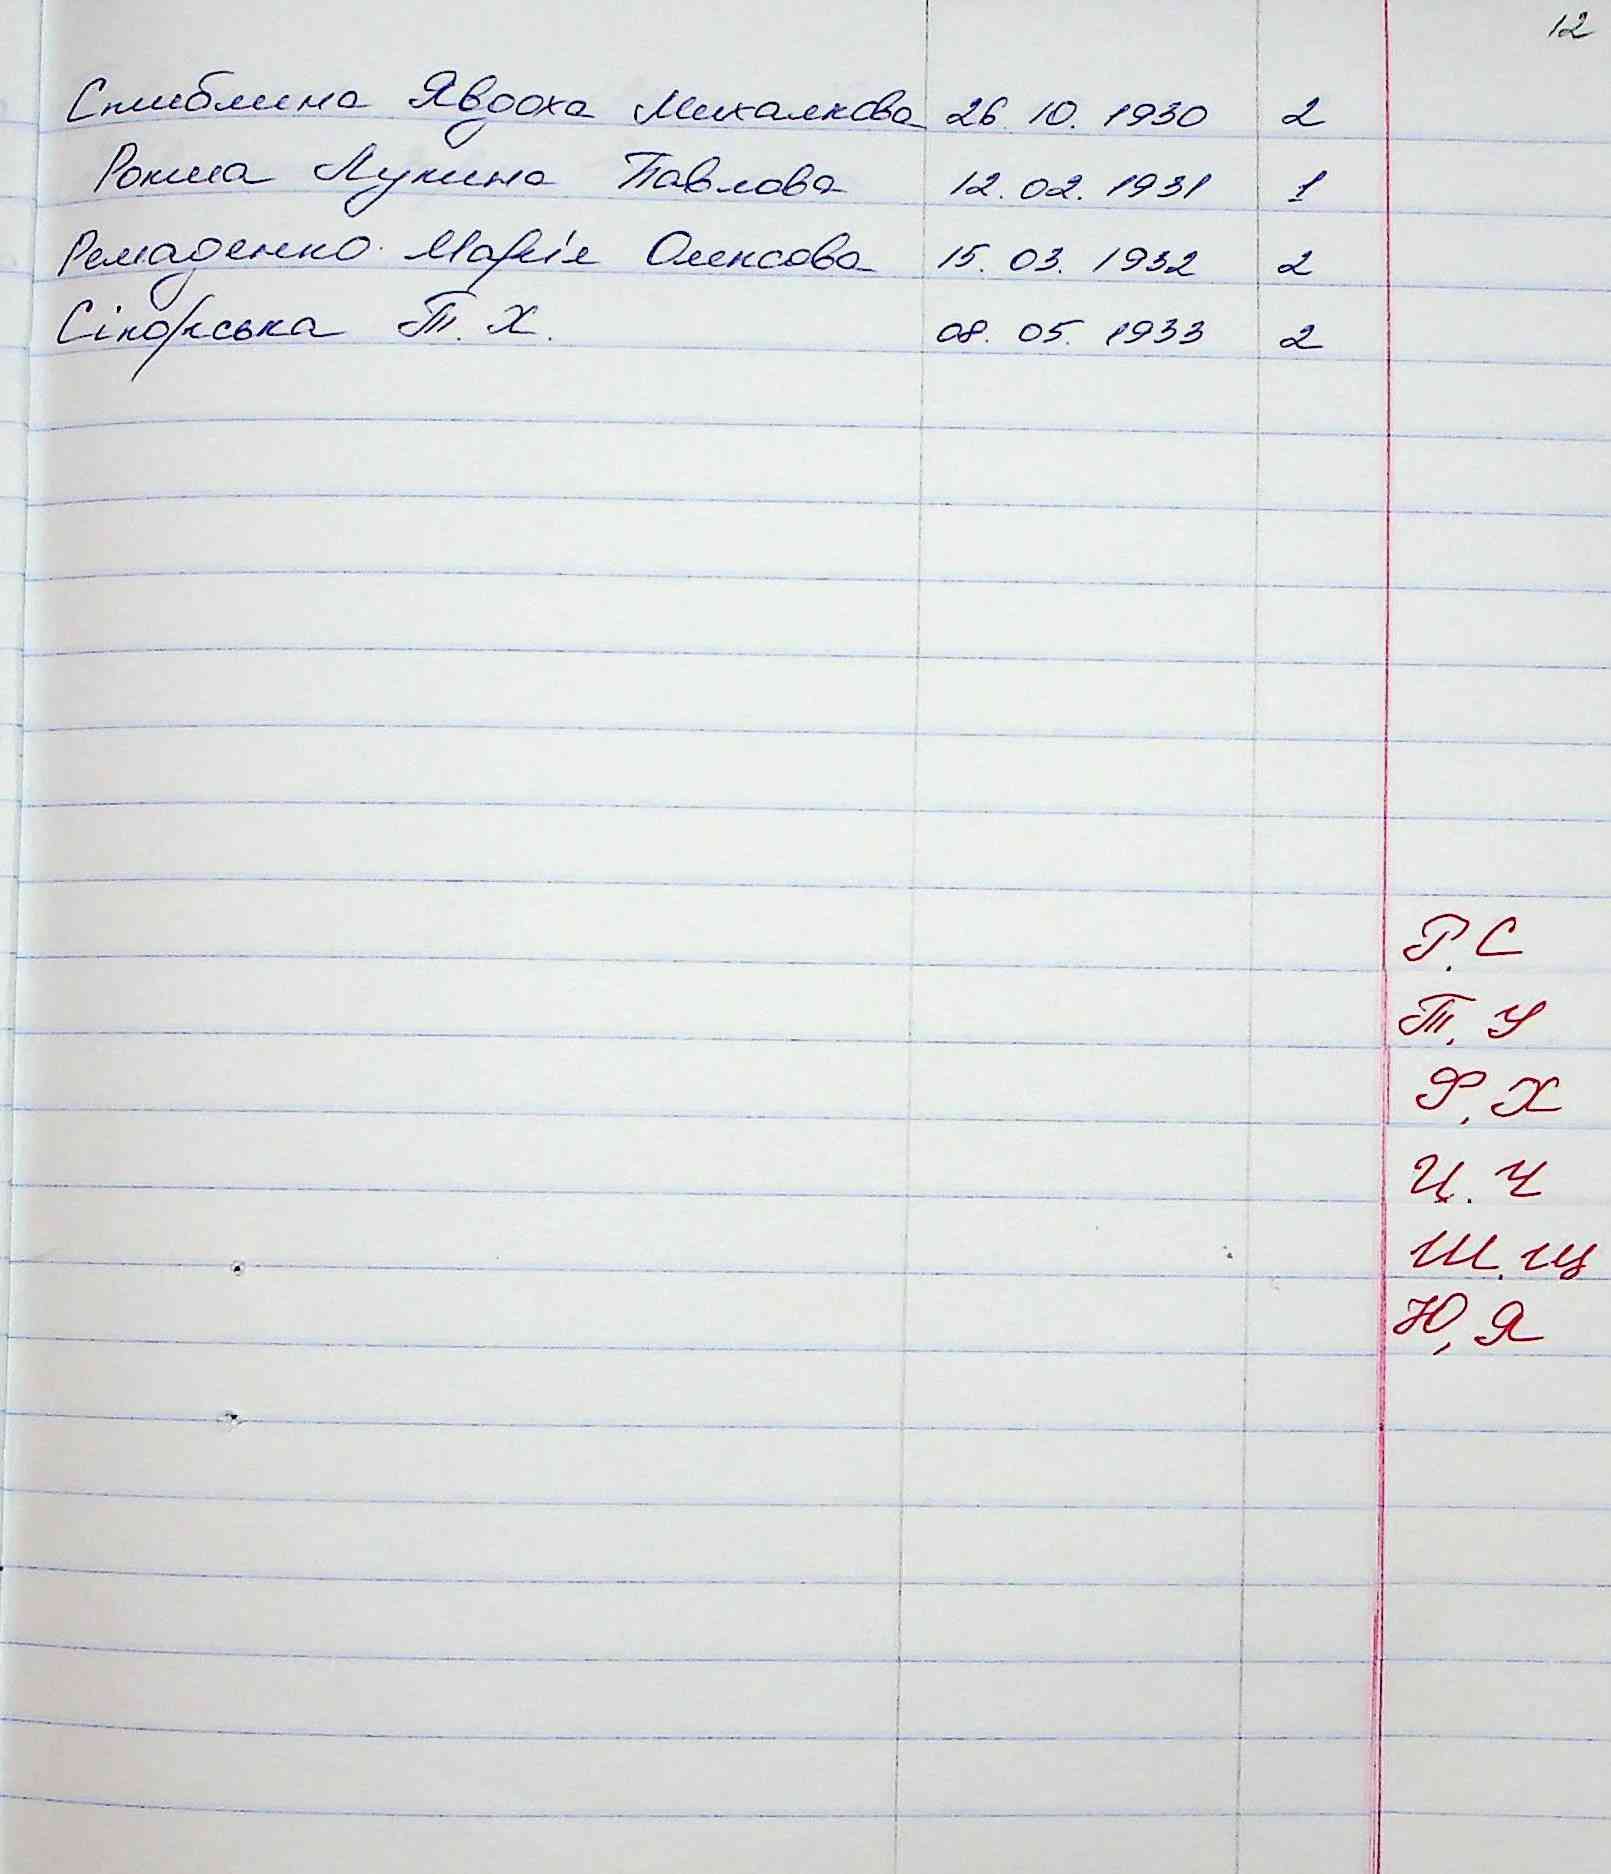 12
Явдоха Михалкова 26. 10. 1930 2
Лукина Павлова 12. 02. 1931 1
Марія Олексова 15. 03. 1932 2
Сікорська Т. Х. 08. 05. 1933 2
Р. С
Т, У
Ф, Х
Ц. Ч
Ш. Щ
Ю, Я